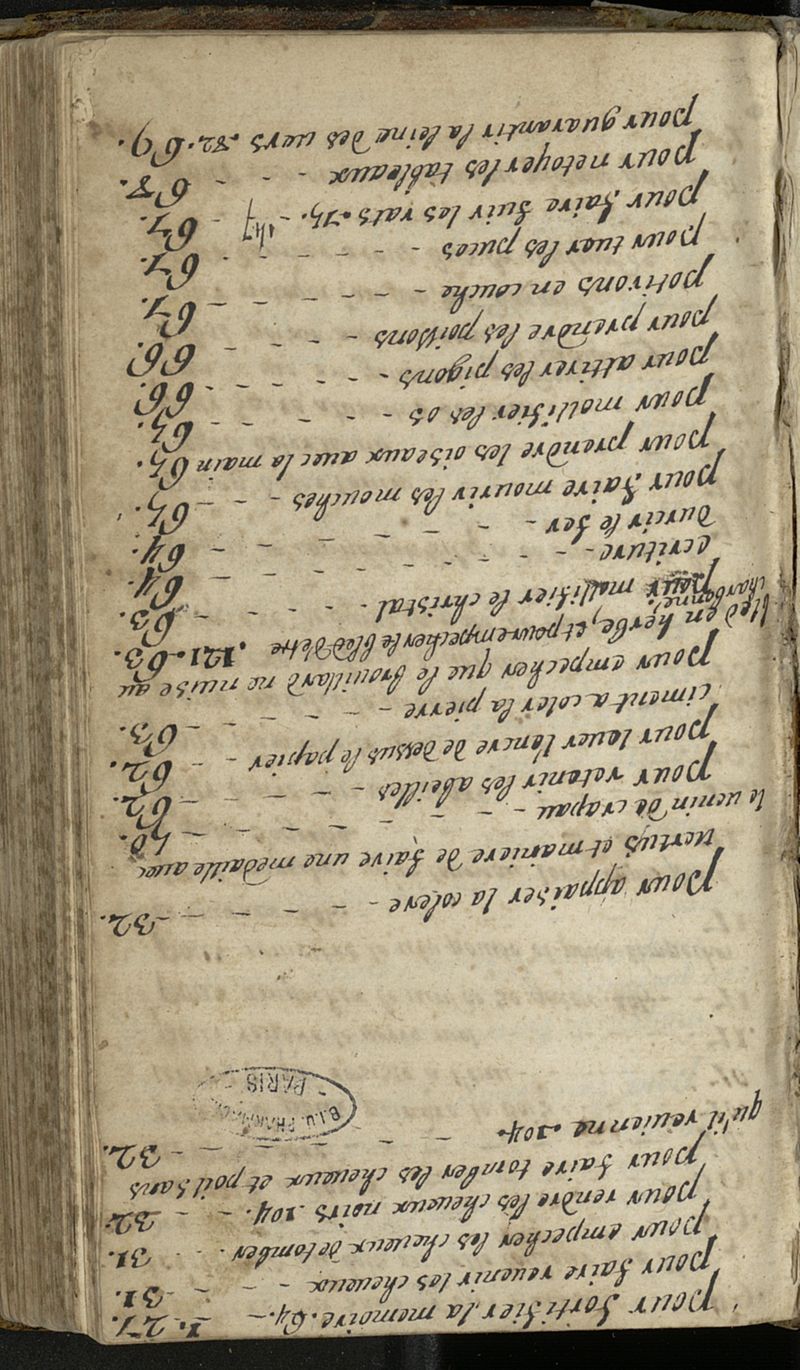 pour fortifier la memoire .64. - 1. 27.
pour faire reuenir les cheueux - - - 31.
pour empecher les cheueux de tomber . . 31.
pour rendre les cheueux noirs .104. - - 32.
pour faire tomber les cheueux et poil sans
qu'il reuienne .104. - - - - - - 32.
B.I.U. PHARMA
PARIS
pour appaiser la colere - - - - - - 32.
uertus et maniere de faire une medaille auec
le uenin de crapau - - - - - - - 50.
pour retenir les abeilles - - - - - 62.
pour lauer l'encre de dessus le papier - - 62.
ciment a coler la pierre - - - - - - 63.
pour empecher que le brouillard ne nuise au
bled en herbe, et pour empecher le bled d'etre .121. 63.
charbonné,
pour mollifier le christal - - - - - 63.
ecriture - - - - - - - - 64.
durcir le fer - - - - - - - 64.
pour faire mourir les mouches - - - 65.
pour prendre les oiseaux auec la main 65.
pour mollifier les os - - - - - 65.
pour attirer les pigons - - - - - 66.
pour prendre les poissons - - - - 66.
potirons en couche - - - - - - 67.
pour tuer les puces - - - - - - 67.
pour faire fuir les rats .75. - 147 - 67.
pour netoyer les tableaux - - - 68.
pour guarantir la leine des uers .82. 69.